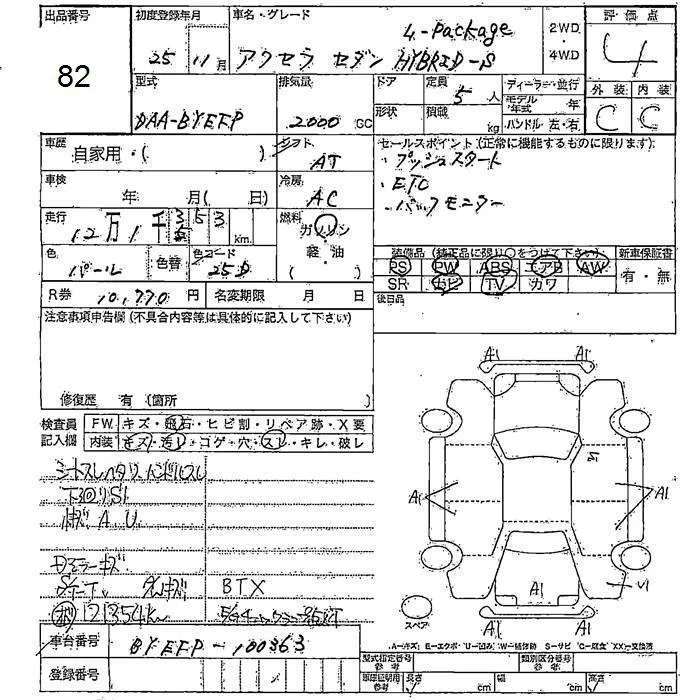 出品番号
82
初度登録年月
25 11月
車名・グレード
L-Package
アクセラ セダン HYBRID-S
2WD
4WD
評価点
4
型式
DAA-BYEFP
排気量
2000 CC
ドア
定員
5人
ディーラー・並行
モデル年式 年
形状
積載
kg
ハンドル(左・右)
外装 内装
C C
車歴
自家用・( )
シフト
AT
セールスポイント(正常に機能するものに限ります)
・プッシュスタート
・ETC
・バックモニター
車検
年 月( 日)
冷房
AC
走行
12万1千353
km
燃料
ガソリン
軽油
( )
色
パール
色替
色コード
25D
装備品(純正品に限り○をつけて下さい)
新車保証書
PS PW ABS エアB AW
有・無
SR ナビ TV カワ
R券 10,770円
名変期限 月 日
後日品
注意事項申告欄(不具合内容等は具体的に記入して下さい)
修復歴 有 (箇所 )
検査員
記入欄
FW キズ・飛石・ヒビ割・リペア跡・X要
内装 キズ・汚レ・コゲ・穴・スレ・キレ・破レ
下回りS1
Dミラーキズ
BTX
121354km
車台番号
BYEFP-100363
登録番号
A1 A1
A1
A1
A1
A1 A1
スペア
A=キズ E=エクボ U=凹み W=補修跡 S=サビ C=腐食 XX=交換済
型式指定番号
参考
類別区分番号
参考
車庫証明用
参考
長さ cm
幅 cm
高さ cm